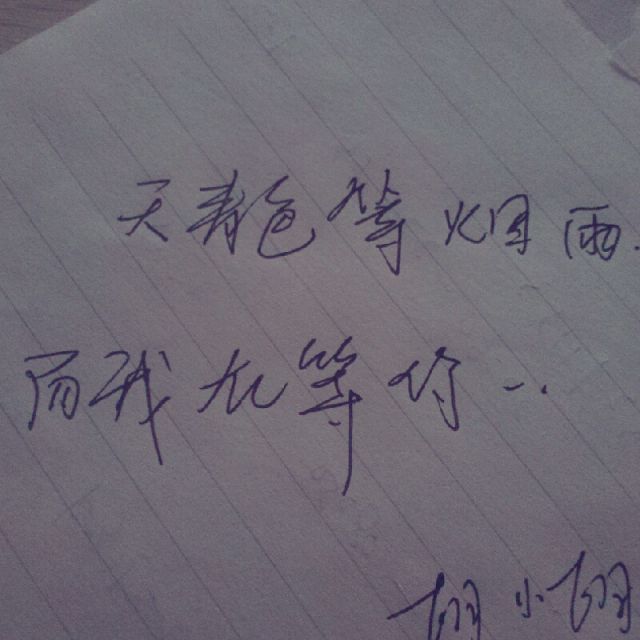 天青色等烟雨.
而我在等你...
小